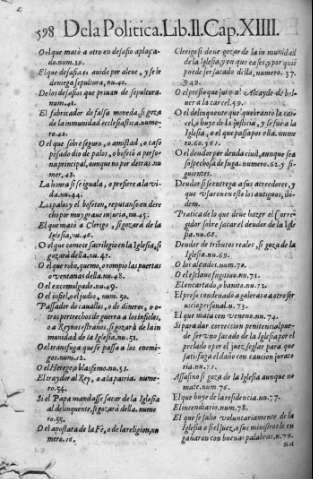 598 De la Politica. Lib. II. Cap. XIIII.
O el que matò a otro en desafio aplaça-
do. num. 39.
El que desafia es auido por aleue, y se le
deniega sepultura, nu. 40.
De los desafios que priuan de sepultura.
num. 41.
El fabricador de falsa moneda, si goza
de la inmunidad ecclesiastica. nume-
ro. 42.
O el que sobre seguro, o amistad, o caso
pensado dio de palos, o bofetò a perso-
na principal, aunque no por detras. nu
mer. 43.
La honra si se iguala, o prefiere a la vi-
da. nu. 44.
Los palos y el bofeton, reputanse en dere
cho por muy graue injuria, nu. 45.
El que matò a Clerigo, si gozarà de la
Iglesia. nu. 46.
O el que comete sacrilegio en la Iglesia, si
gozarà della. nu. 47.
O el que roba, quema, o rompio las puertas
o ventanas della. nu. 48.
O el excomulgado. nu. 49.
O el infiel, o el judio, num. 50.
Passador de cauallos, o de dineros, o o-
tros pertrechos de guerra a los infieles,
o a Reynos estraños, si gozarà de la in
munidad de la Iglesia. nu. 51.
O el transfuga que se passa a los enemi-
gos. num. 52.
O el Herege o blasfemo. nu. 53.
El traydor al Rey, o a la patria. nume-
ro. 54.
Si el Papa mandasse sacar de la Iglesia
al delinquente, si gozarà della. nume
ro. 55.
O el apostata de la Fè, o de la religion, nu
mero. 56.
Clerigo si deue gozar de la inmunidad
de la Iglesia, y en que casos, y por quiẽ
puede ser sacado della, numero. 57.
O el preso que jurò al Alcayde de bol-
uer a la carcel. 59.
O el delinquente que quebrantò la car-
cel, o huye de la justicia, y se fue a la
Iglesia, o el que passa por ella. nume
ro. 60. y 61.
O el deudor por deuda ciuil, aunque sea
sospechoso de fuga. numero. 62. y si-
guientes.
Deudor si se entrega a sus acreedores, y
que vsaron en esto los antiguos, ibi-
dem.
Pratica de lo que deue hazer el Corre-
gidor sobre sacar el deudor de la Igle
sia. nu. 68.
Deudor de tributos reales, si goza de la
Iglesia. nu. 69.
O los alçados. num. 70.
O el esclauo fugitiuo. nu. 71.
El encartado, o banido. nu. 72.
El preso condenado a galeras o a otro ser
uicio personal. n. 73.
El que mata con veneno. nu. 74.
Si para dar correccion penitencial pue-
de ser vno sacado de la Iglesia por el
perlado o por el juez seglar para que
satisfaga el daño con caucion jurato
ria. nu. 75.
Assasino si goza de la Iglesia aunque no
mate. num. 76.
El que huye de la residencia. nu. 77.
El incendiario. num. 78.
El que se salio voluntariamente de la
Iglesia o si el juez, o sus ministros le en
gañaron con buenas palabras, n. 79.